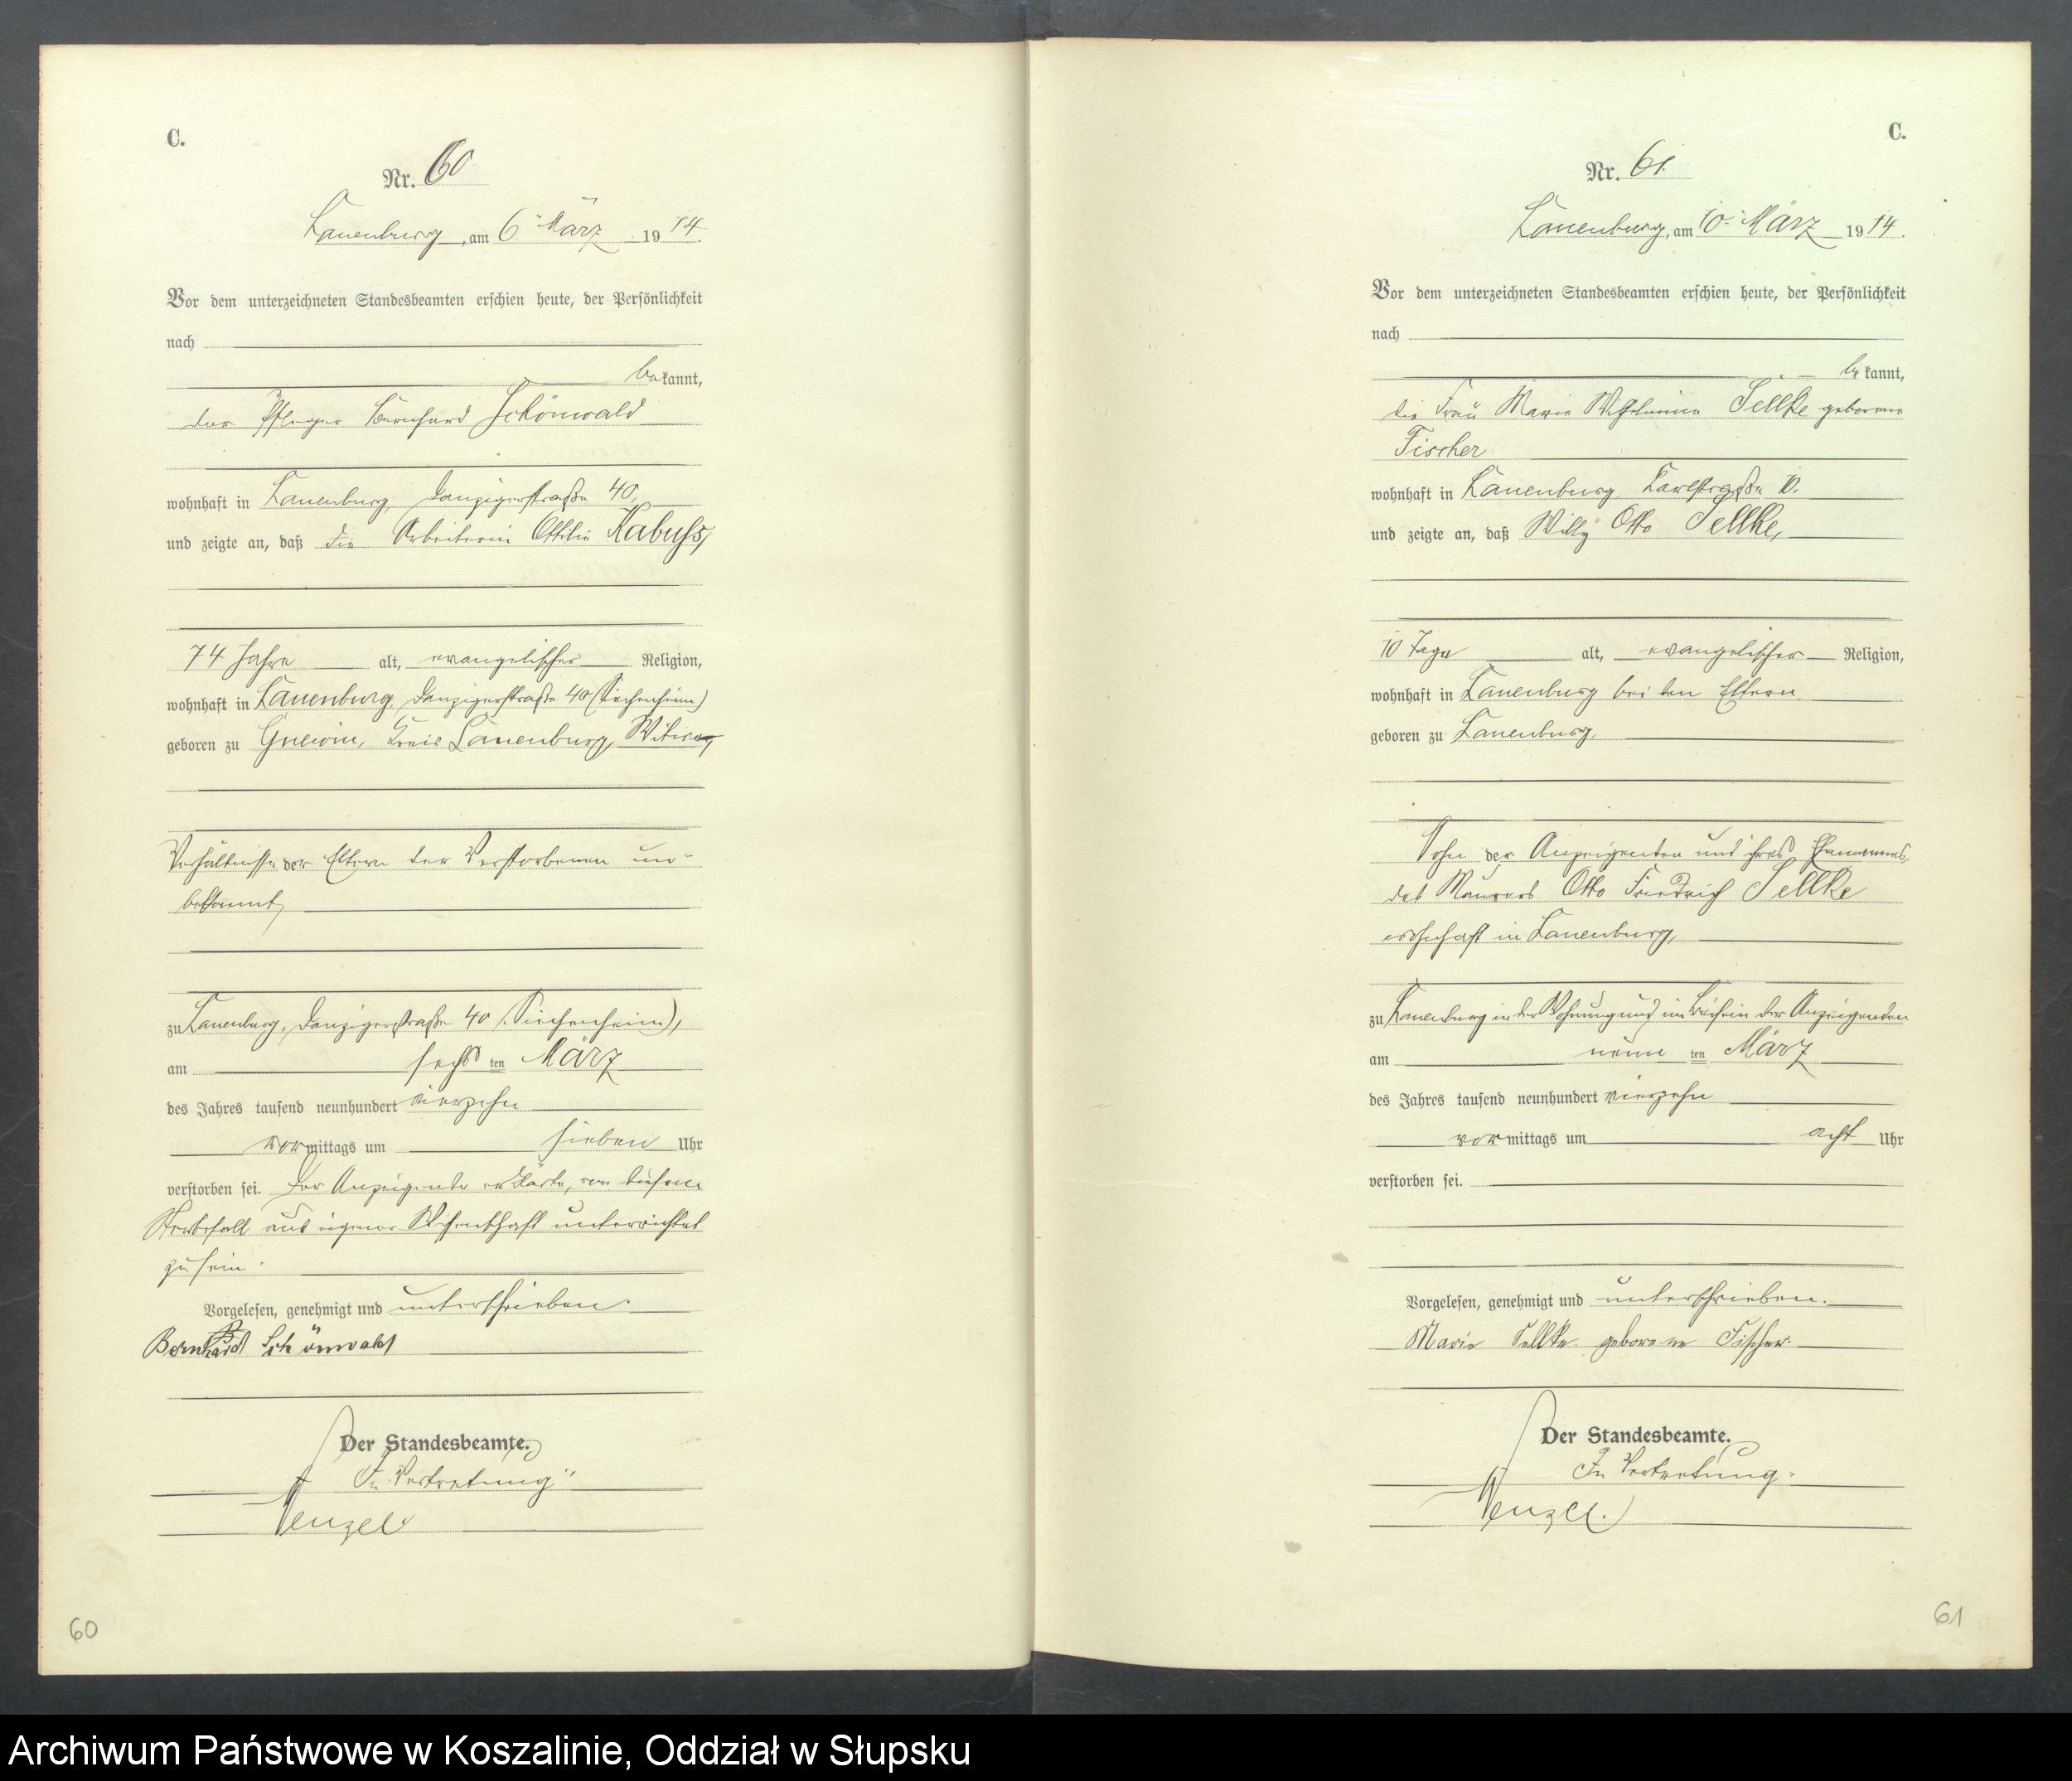 C.
Nr. 60
Lauenburg, am 6. März 1914.
Vor dem unterzeichneten Standesbeamten erschien heute, der Persönlichkeit
nach
bekannt,
der Pfleger Bernhard Schönwald
wohnhaft in Lauenburg, Danzigerstraße 40,
und zeigte an, daß die Arbeiterin Ottilie Kabuss,
74 Jahre alt, evangelischer Religion,
wohnhaft in Lauenburg, Danzigerstraße 40 (Siechenheim)
geboren zu Gnewin, Kreis Lauenburg, Witwe,
Verhältnisse der Eltern der Verstorbenen un-
bekannt,
zu Lauenburg, Danzigerstraße 40 (Siechenheim),
am sechsten März
des Jahres tausend neunhundert vierzehn
vormittags um sieben Uhr
verstorben sei. Der Anzeigende erklärte, von diesem
Sterbefall aus eigener Wissenschaft unterrichtet
zu sein.
Vorgelesen, genehmigt und unterschrieben.
Bernhard Schönwald
Der Standesbeamte.
In Vertretung
Wenzel
60
C.
Nr. 61.
Lauenburg, am 10. März 1914.
Vor dem unterzeichneten Standesbeamten erschien heute, der Persönlichkeit
nach
bekannt,
die Frau Marie Wilhelmine Sellke geborene
Fischer
wohnhaft in Lauenburg, Karlstraße 10.
und zeigte an, daß Willy Otto Sellke,
10 Tage alt, evangelischer Religion,
wohnhaft in Lauenburg bei den Eltern
geboren zu Lauenburg,
Sohn der Anzeigenden und ihres Ehemannes,
des Maurers Otto Friedrich Sellke
wohnhaft in Lauenburg,
zu Lauenburg in der Wohnung und im Beisein der Anzeigenden
am neunten März
des Jahres tausend neunhundert vierzehn
vormittags um acht Uhr
verstorben sei.
Vorgelesen, genehmigt und unterschrieben.
Marie Sellke geborene Fischer.
Der Standesbeamte.
In Vertretung.
Wenzel.
61
Archiwum Państwowe w Koszalinie, Oddział w Słupsku